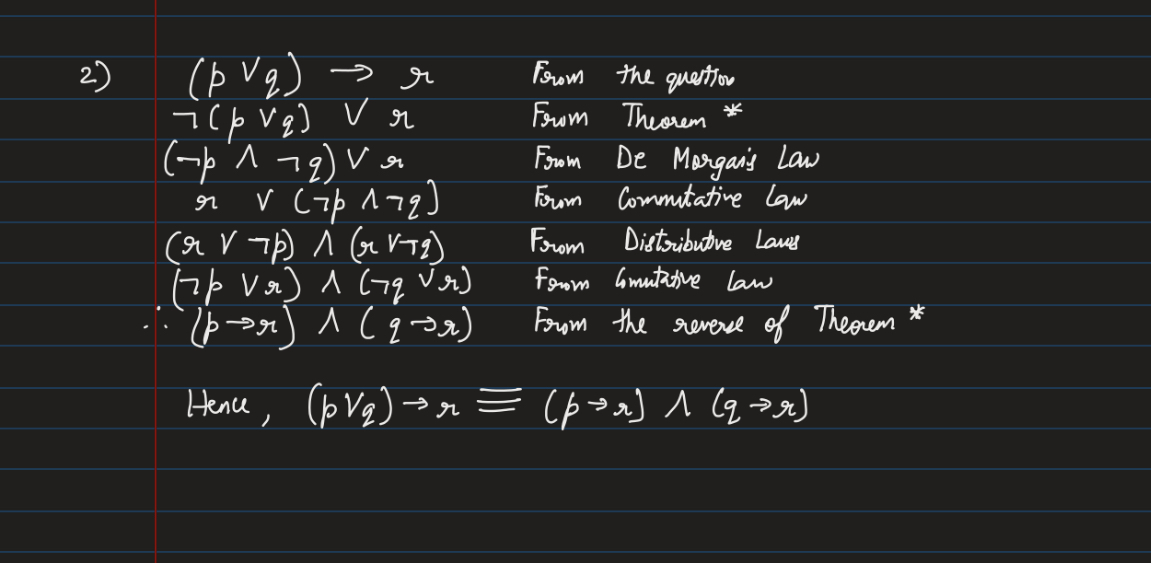 2) (p ∨ q) → r From the question
¬(p ∨ q) ∨ r From Theorem *
(¬p ∧ ¬q) ∨ r From De Morgan's Law
r ∨ (¬p ∧ ¬q) From Commutative Law
(r ∨ ¬p) ∧ (r ∨ ¬q) From Distributive Laws
(¬p ∨ r) ∧ (¬q ∨ r) From Law
∴ (p → r) ∧ (q → r) From the reverse of Theorem *
Hence, (p ∨ q) → r ≡ (p → r) ∧ (q → r)